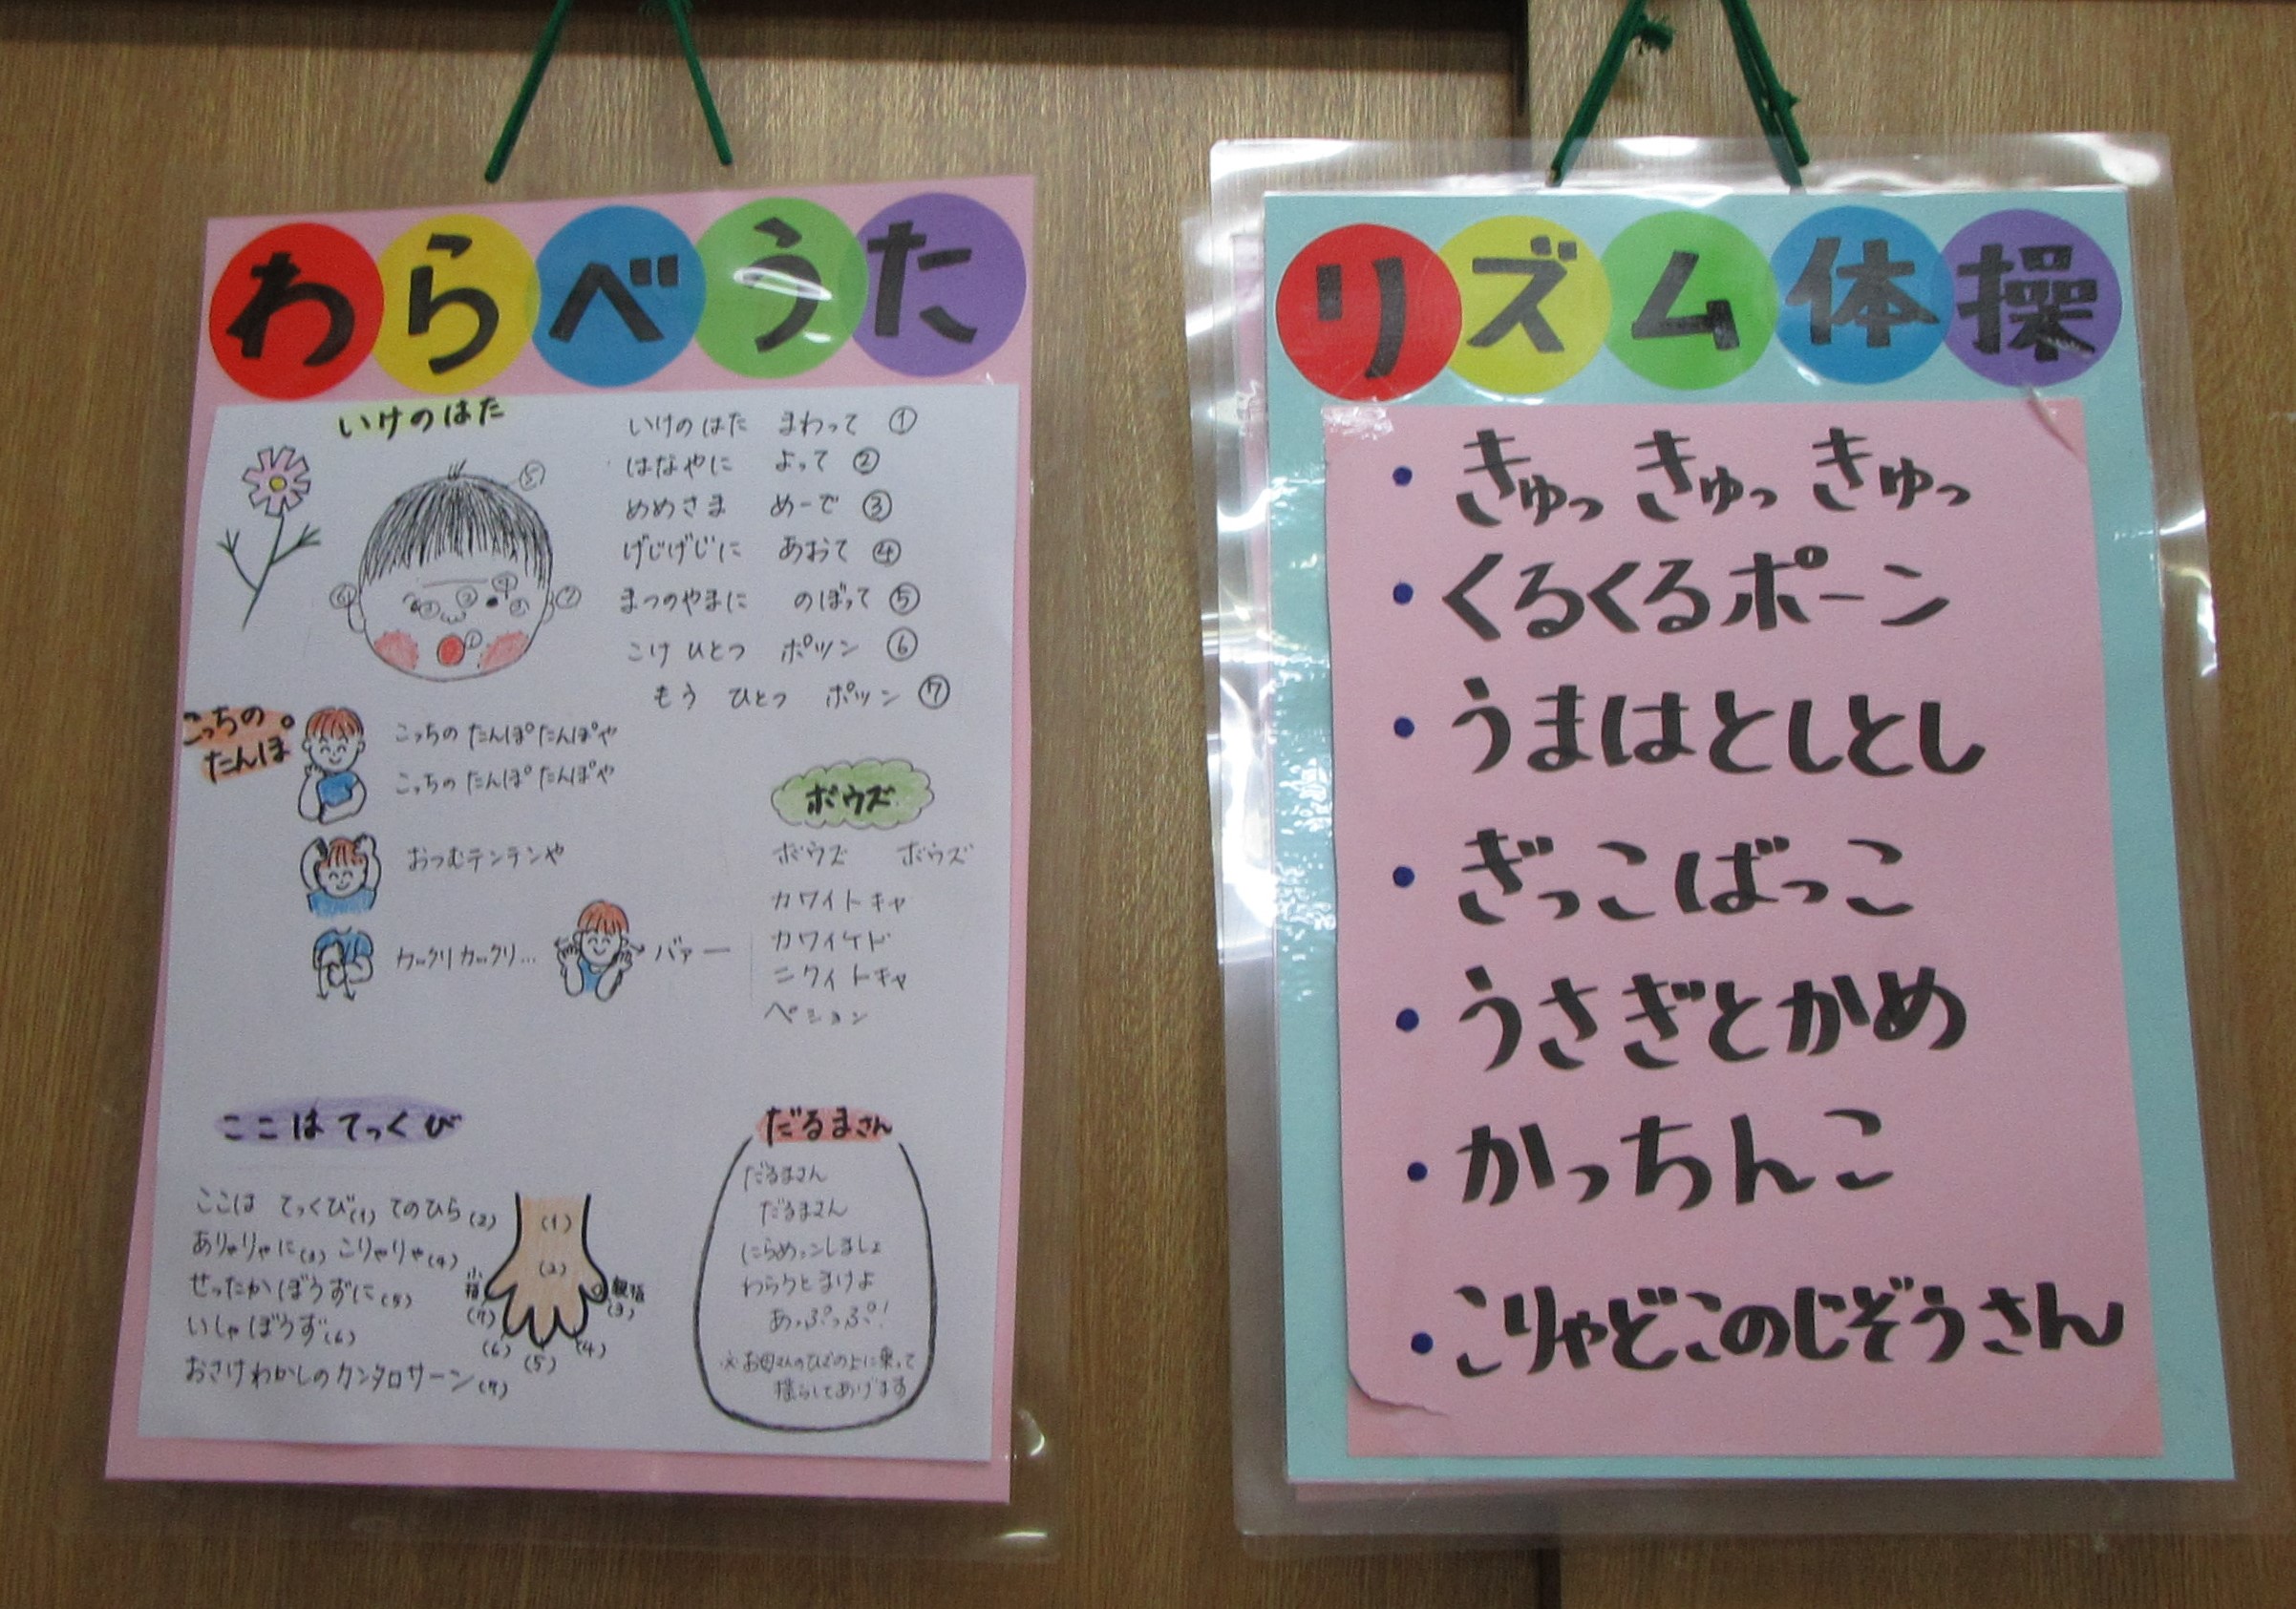 わらべうた
いけのはた
いけのはた まわって ①
はなやに よって ②
めめさま めーで ③
げじげじに あおて ④
まつのやまに のぼって ⑤
こけ ひとつ ポツン ⑥
もう ひとつ ポツン ⑦
こっちの
たんぽ
こっちの たんぽ たんぽや
こっちの たんぽ たんぽや
おつむテンテンや
カックリカックリ… バァー
ボウズ
ボウズ ボウズ
カワイトキャ
カワイケド
ニクイトキャ
ペション
ここはてっくび
ここは てっくび(1) てのひら(2)
ありゃりゃに(3) こりゃりゃ(4)
せったかぼうずに(5)
いしゃぼうず(6)
おさけわかしのカンタロサーン(7)
(1)
(2)
小指
(7)
親指
(3)
(6)
(5)
(4)
だるまさん
だるまさん
だるまさん
にらめっこしましょ
わらうとまけよ
あっぷっぷ!
※お母さんのひざの上に乗って
揺らしてあげます
リズム体操
・きゅっ きゅっ きゅっ
・くるくるポーン
・うまはとしとし
・ぎっこばっこ
・うさぎとかめ
・かっちんこ
・こりゃどこのじぞうさん